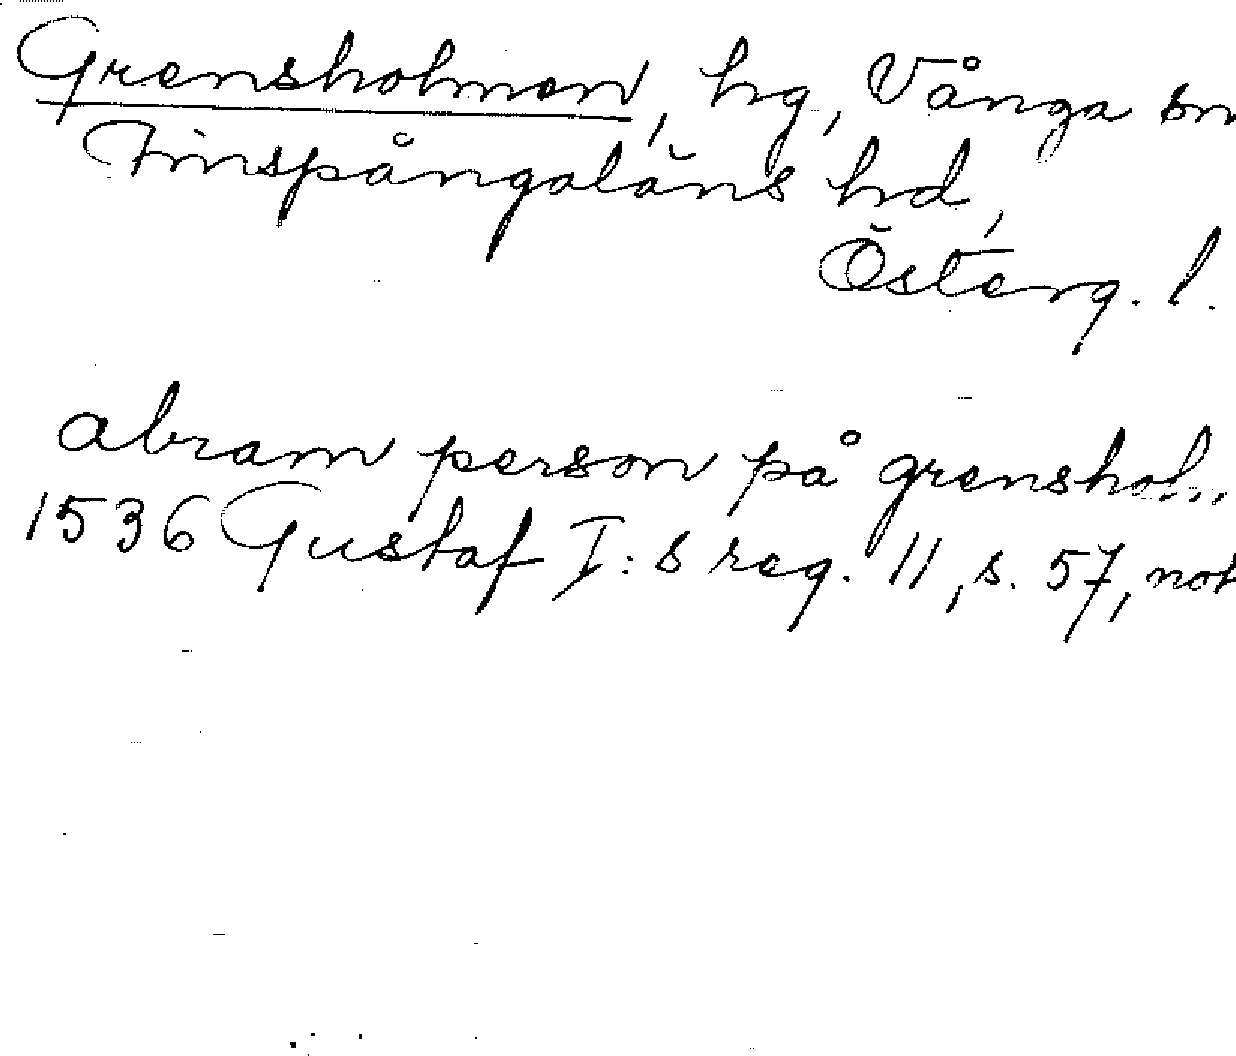 Grensholmen, hg, Vånga sn
Finspångaläns hd,
Österg. l.
abram person på grensholm
1536 Gustaf I:s reg. 11, s. 57, not